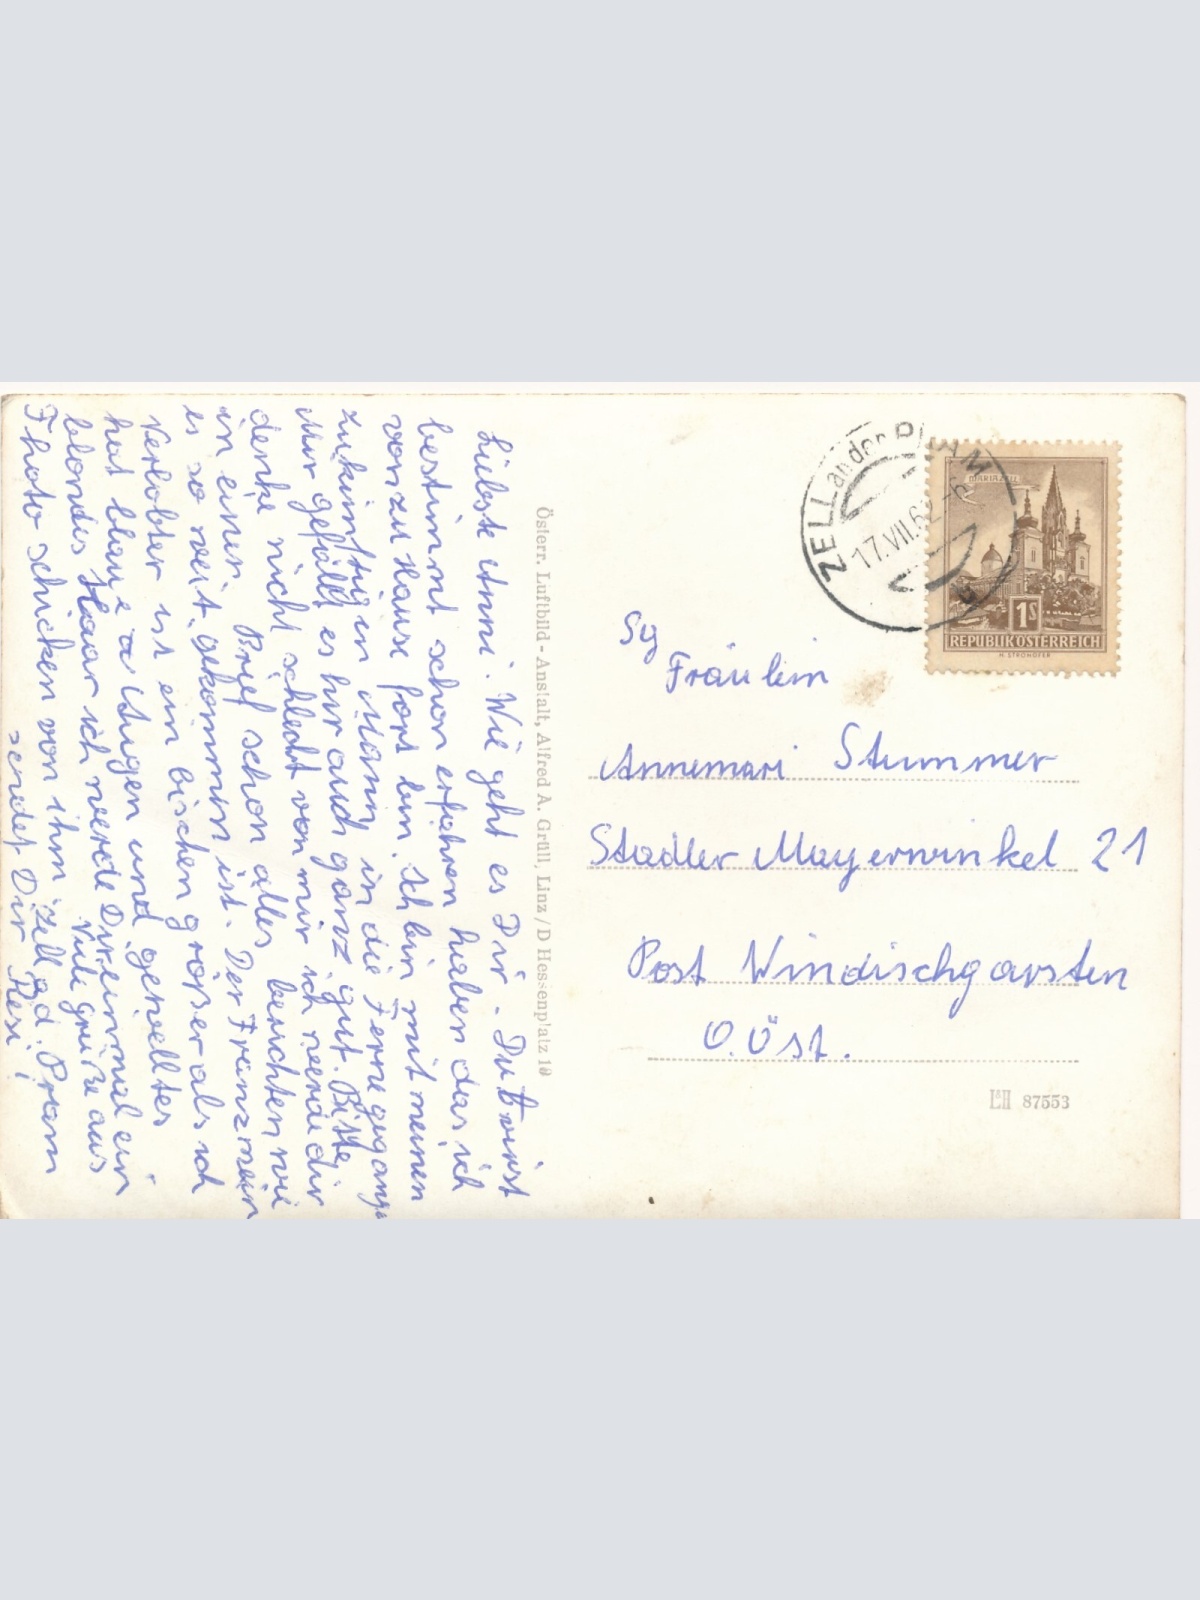 Liebste Anni. Wie geht es Dir. Du wirst
bestimmt schon erfahren haben das ich
von zu Hause fort bin. Ich bin mit meinen
zukünftigen Mann in die Ferne gegangen
Mir gefällt es hir auch ganz gut. Bitte,
denke nicht schlecht von mir ich werde dir
in einen Brief schon alles berichten wie
es so weit gekommen ist. Der Franz mein
Verlobter ist ein bischen größer als ich
hat blaue Augen und gewelltes
blondes Haar ich werde Dir einmal ein
Photo schicken von ihm
Viele grüße aus
Zell a.d. Pram
sendet Dir Resi
Österr. Luftbild - Anstalt, Alfred A. Grüll, Linz/D Hessenplatz 19
ZELL an der PRAM
17.VII.62
MARIAZELL
1S
REPUBLIK ÖSTERREICH
H. STROHOFER
Sg
Fräulein
Annemari Stummer
Stadler Mayerwinkel 21
Post Windischgarsten
O.Öst.
87553